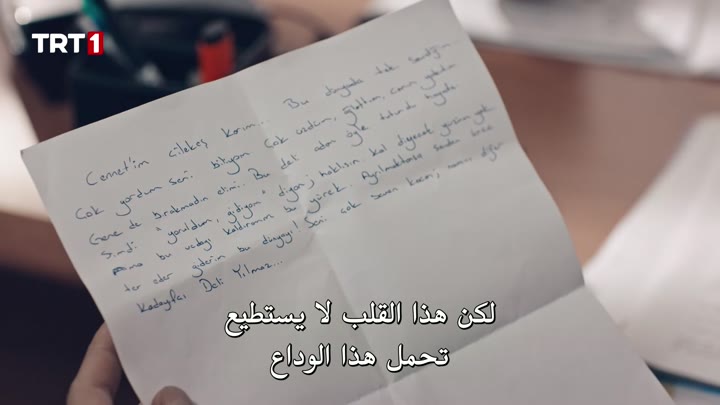 TRT 1
Cennet'im cilekeş karım... Bu dünyada tek sevdiğim...
Çok yordum seni biliyom Çok üzdüm, ağlattım, canın yaktım
Gene de bırakmadın elimi.. Bu deli adam öyle tutundu hayata
Şimdi "yoruldum, gidiyom" diyon; haklısın. kal diyecek yüzüm yok
Ama bu vedayı kaldıramıyo bu yürek. Ayrılmaktansa senden önce
ter eder giderim bu dünyayı! Seni çok seven kocan;
Kadayıfçı Deli Yılmaz...
لكن هذا القلب لا يستطيع
تحمل هذا الوداع